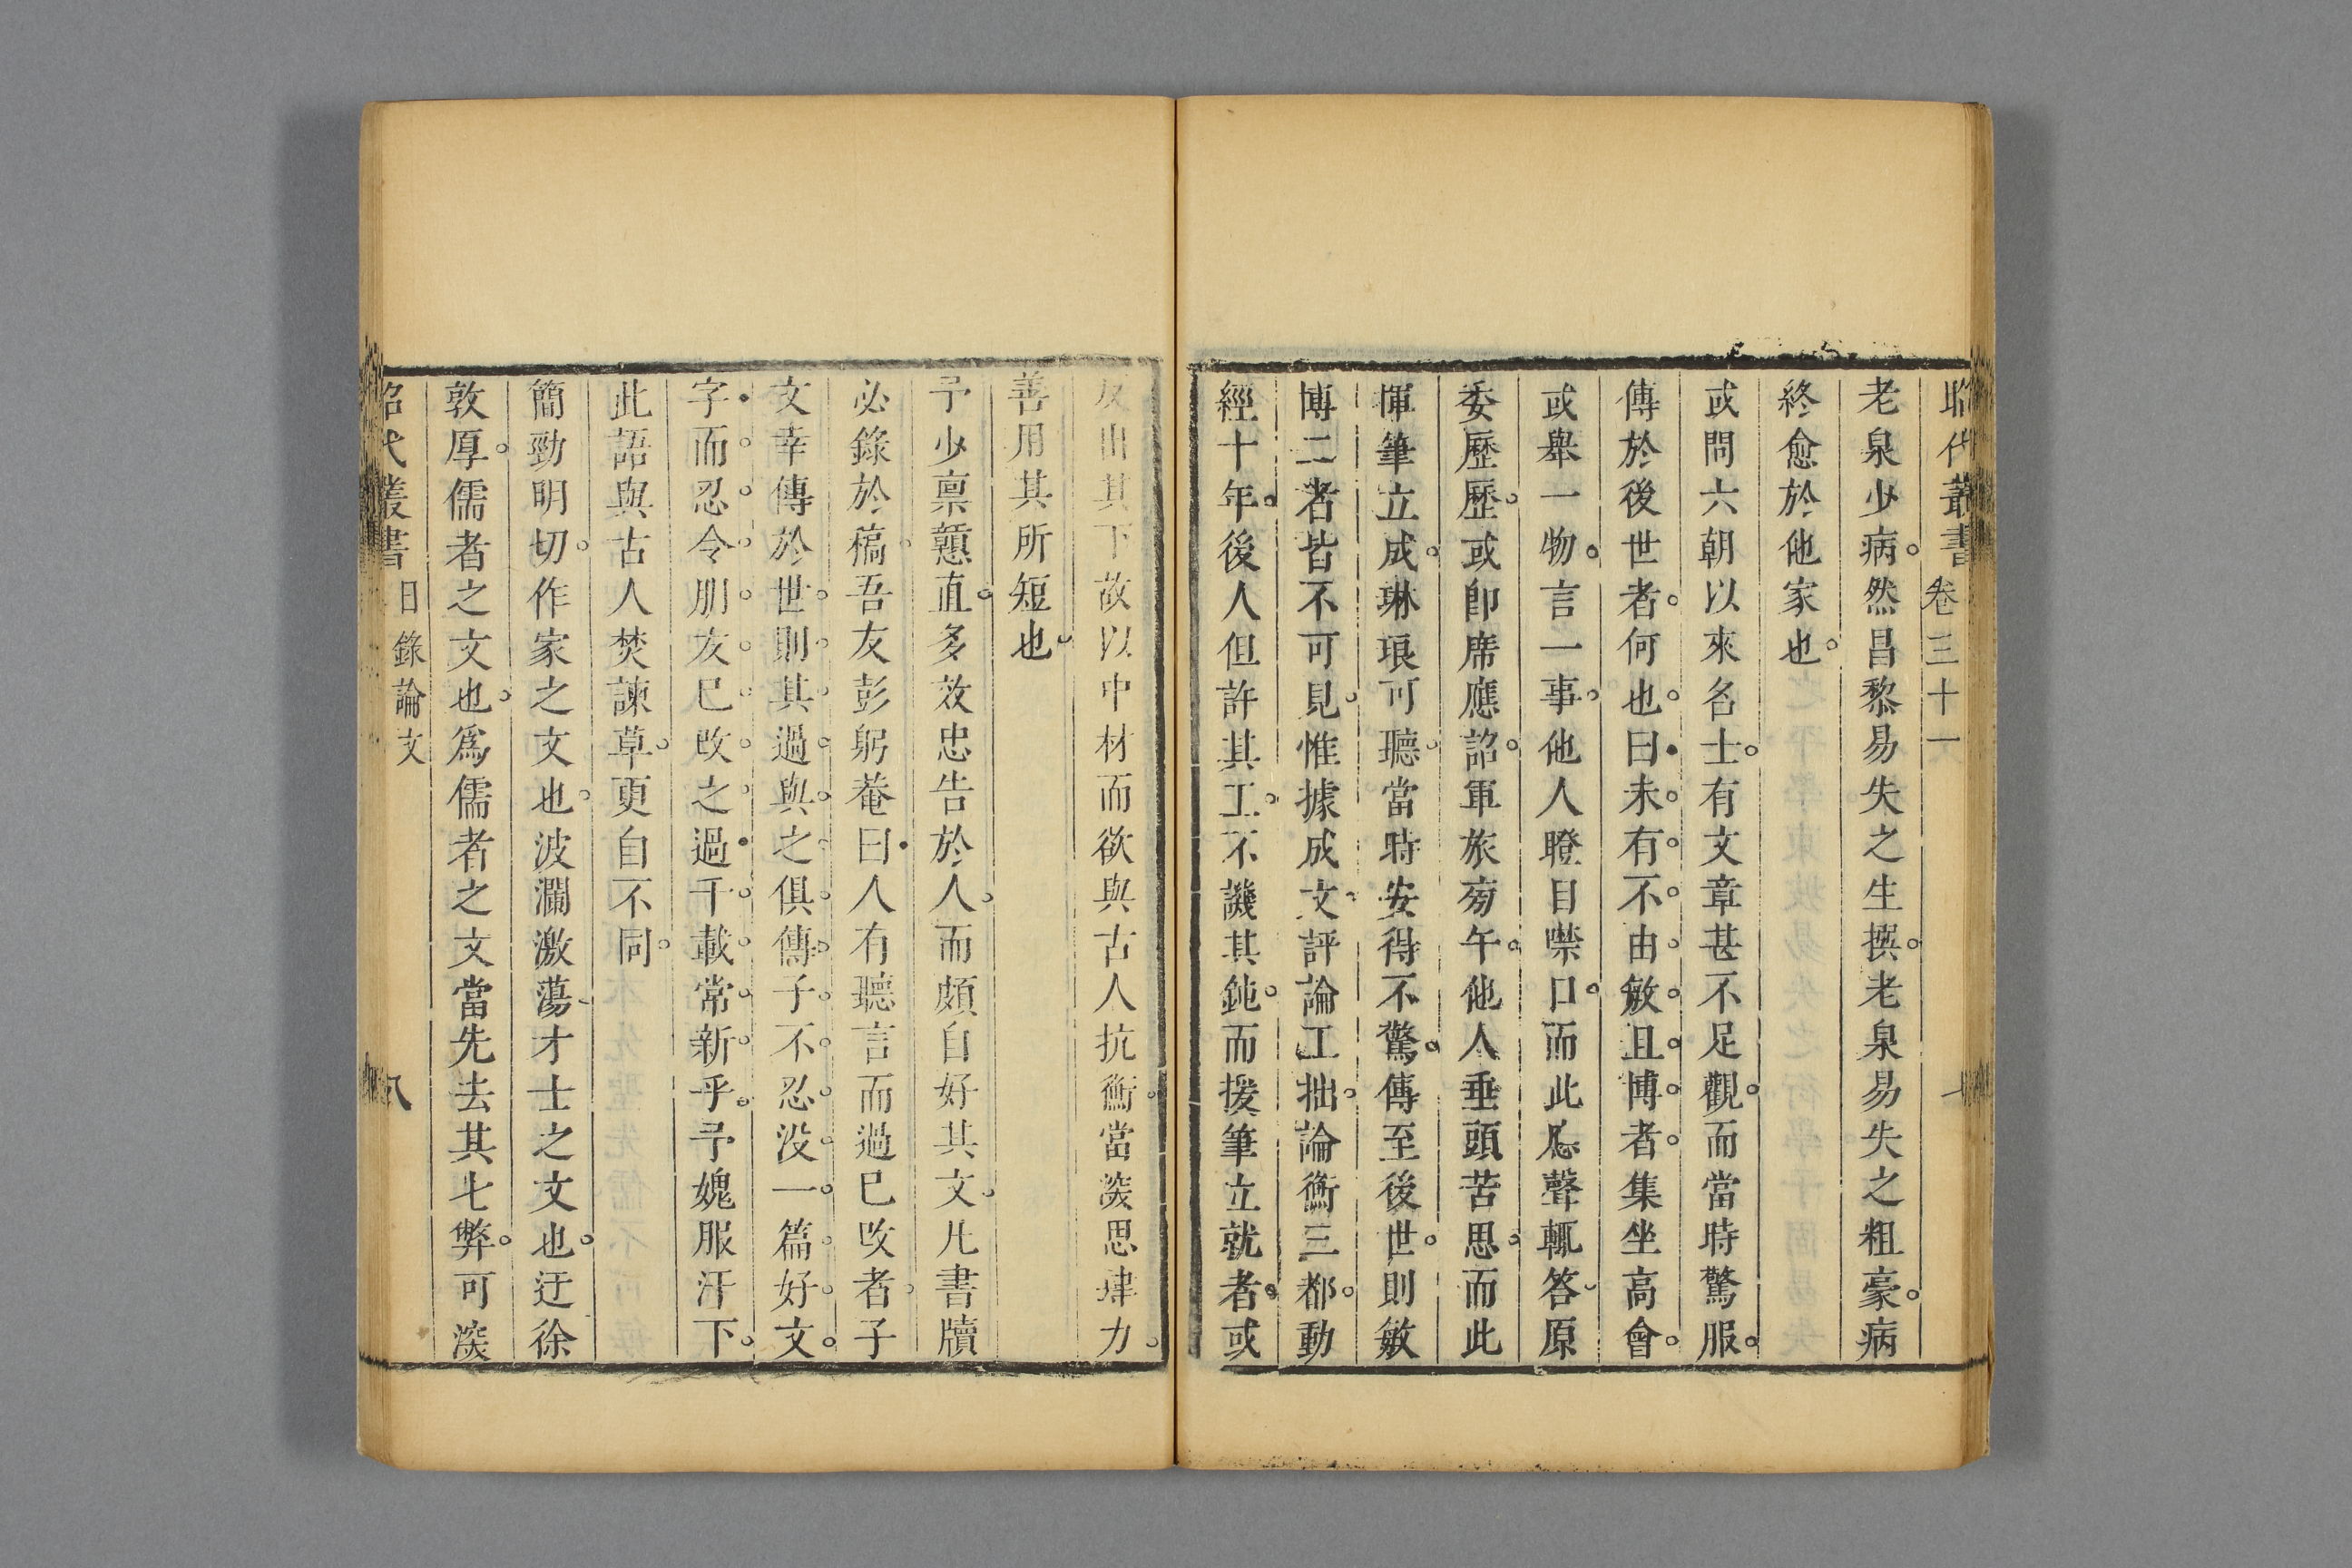 昭代叢書 卷三十一
老泉少病然昌黎易失之生撰老泉易失之粗豪病
終愈於他家也
或問六朝以來名士有文章甚不足觀而當時驚服
傳於後世者何也曰未有不由敏且博者集坐高會
或舉一物言一事他人瞪目噤口而此應聲輒答原
委歷歷或卽席應詔軍旅旁午他人垂頭苦思而此
揮筆立成琳琅可聽當時安得不驚傳至後世則敏
博二者皆不可見惟據成文評論工拙論衡三都動
經十年後人但許其工不譏其鈍而援筆立就者或
反出其下故以中材而欲與古人抗衡當湥思肆力
善用其所短也
予少禀戇直多效忠告於人而頗自好其文凡書牘
必錄於稿吾友彭躬菴曰人有聽言而過已改者子
文幸傳於世則其過與之俱傳子不忍没一篇好文
字而忍令朋友已改之過千載常新乎予媿服汗下
此語與古人焚諫草更自不同
簡勁明切作家之文也波瀾激蕩才士之文也迂徐
敦厚儒者之文也爲儒者之文當先去其七弊可湥
昭代叢書 日錄論文 八